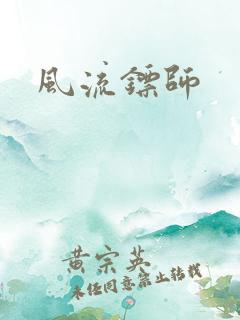 風流鏢師
黄宗英
未经同意禁止转载